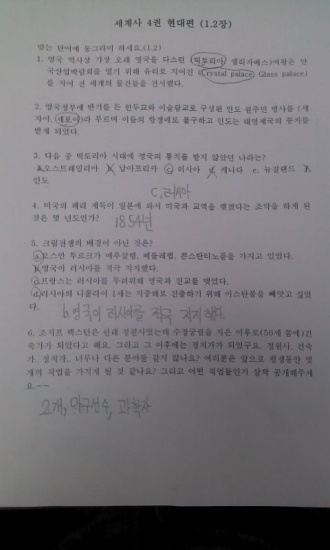 세계사 4권 현대편 (1.2장)
맞는 단어에 동그라미 하세요.(1.2)
1. 영국 역사상 가장 오래 영국을 다스린 (빅토리아, 엘리자베스)여왕은 만
국산업박람회를 열기 위해 유리로 지어진 (Crystal palace, Glass palace)
를 지어 전 세계의 물건들을 전시했다.
2. 영국정부에 반기를 든 힌두교와 이슬람교로 구성된 인도 원주민 병사를 (세
자이, 세포이)라 부르며 이들의 항쟁에도 불구하고 인도는 대영제국의 통치를
받게 되었다.
3. 다음 중 빅토리아 시대에 영국의 통치를 받지 않았던 나라는?
a.오스트레일리아 b. 남아프리카 c. 러시아 d. 캐나다 e. 뉴질랜드 f.
인도
C.러시아
4. 미국의 페리 제독이 일본에 와서 미국과 교역을 맺겠다는 조약을 하게 된
것은 몇 년도인가? 1854년
5. 크림전쟁의 배경이 아닌 것은?
a.오스만 투르크가 예루살렘, 베들레헴, 콘스탄티노플을 가지고 있었다.
b.영국이 러시아를 적극 지지했다.
c.프랑스는 러시아를 두려워해 영국과 친교를 맺었다.
d.러시아의 니콜라이 1세는 지중해로 진출하기 위해 이스탄불을 빼앗고 싶었
다.
b.영국이 러시아를 적극 지지했다.
6. 조지프 팩스턴은 원래 정원사였는데 수정궁전을 지은 이후로(50세 쯤에)건
축가가 되었다고 해요. 그리고 그 이후에는 정치가가 되었구요. 정원사, 건축
가, 정치가, 너무나 다른 분야들 같지 않나요? 여러분은 앞으로 평생동안 몇
개의 직업을 가지게 될 것 같나요? 그리고 어떤 직업들인지 살짝 공개해주세
요 ~~
2개, 야구선수, 과학자